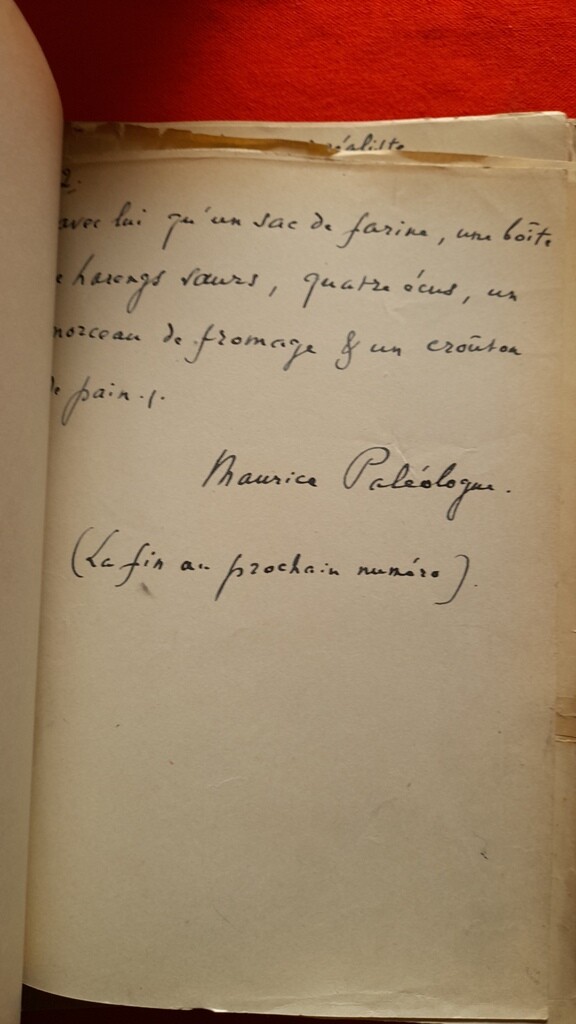 éaliste
2.
avec lui qu'un sac de farine, une boîte
e harengs saurs, quatre écus, un
morceau de fromage & un croûton
de pain ./.
Maurice Paléologue.
(La fin au prochain numéro).